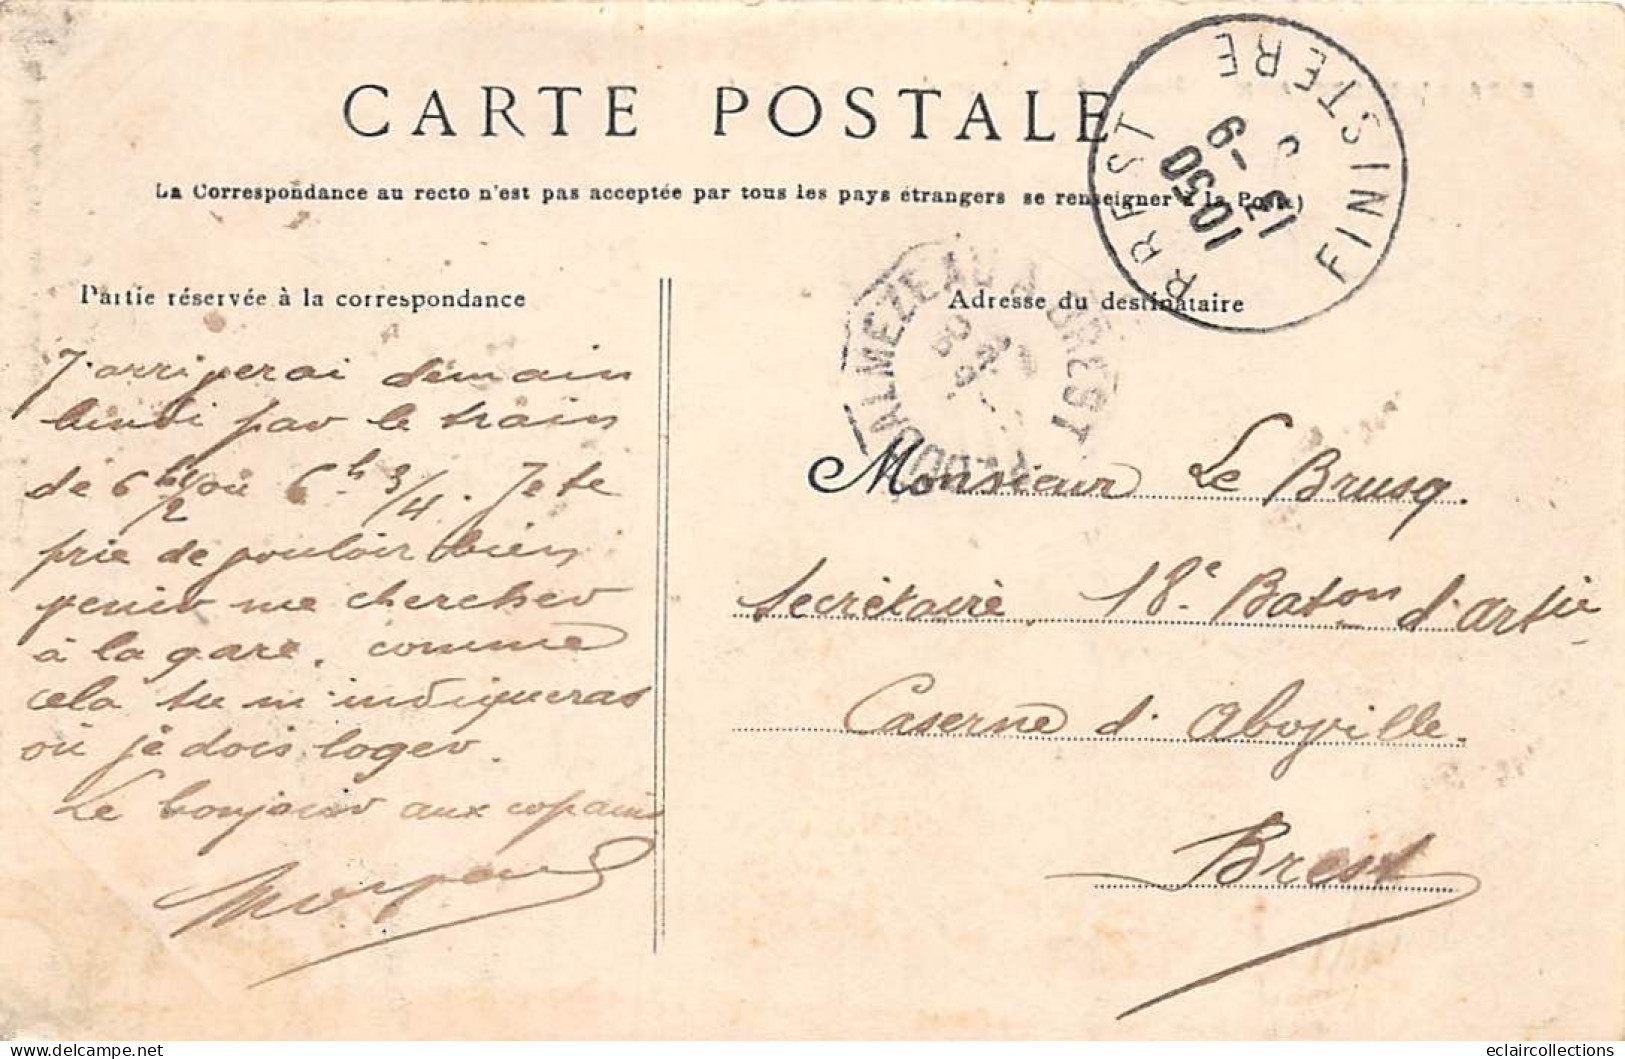 CARTE POSTALE
La Correspondance au recto n'est pas acceptée par tous les pays étrangers se renseigner à la Poste)
BREST
FINISTERE
10 50
13 - 9
Partie réservée à la correspondance
Adresse du destinataire
PLOUDALMEZEAU A BREST
J'arriverai demain
lundi par le train
de 6h 1/2 ou 6h 3/4. Je te
prie de pouloir bien
venir me chercher
à la gare. comme
cela tu m'indiqueras
où je dois loger.
Le bonjour aux copains
Monsieur Le Brusq.
Secrétaire 18e Baton d'artie
Caserne d'Aboville.
Brest
eclaircollections
www.delcampe.net